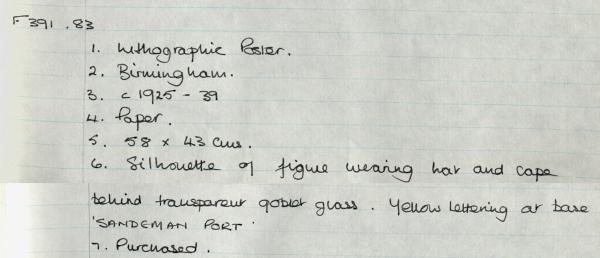 F391.83
1. Lithographic Poster.
2. Birmingham.
3. c 1925 - 39
4. Paper.
5. 58 x 43 cms.
6. Silhouette of figure wearing hat and cape
behind transparent goblet glass. Yellow lettering at base
'SANDEMAN PORT'
7. Purchased.